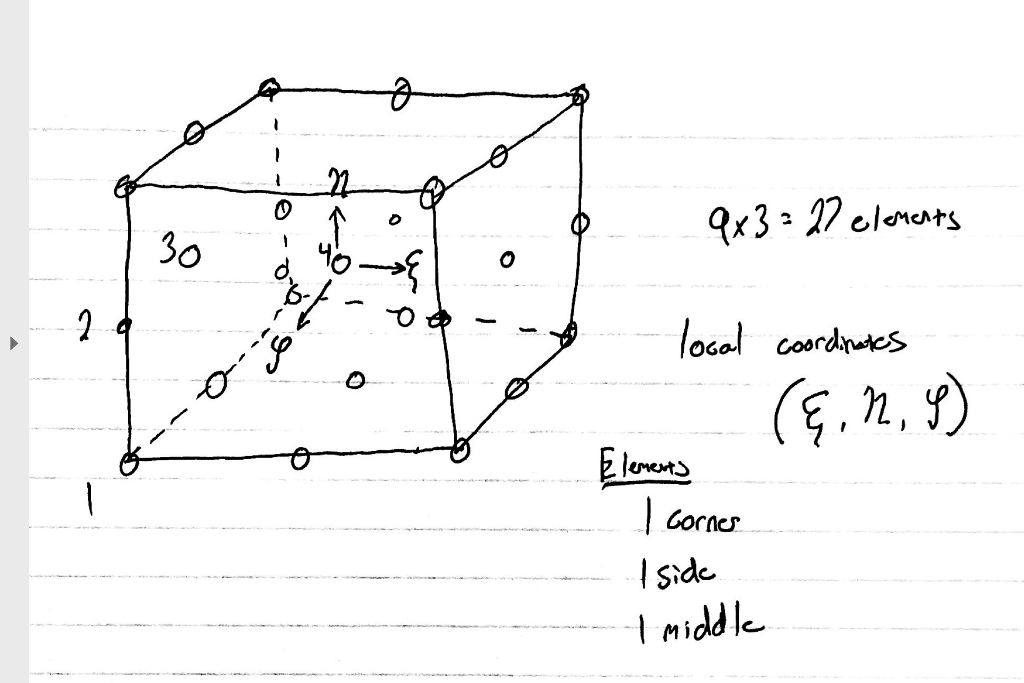 η
3
4
ξ
9x3 = 27 elements
2
φ
local coordinates
(ξ, η, φ)
Elements
1
1 corner
1 side
1 middle